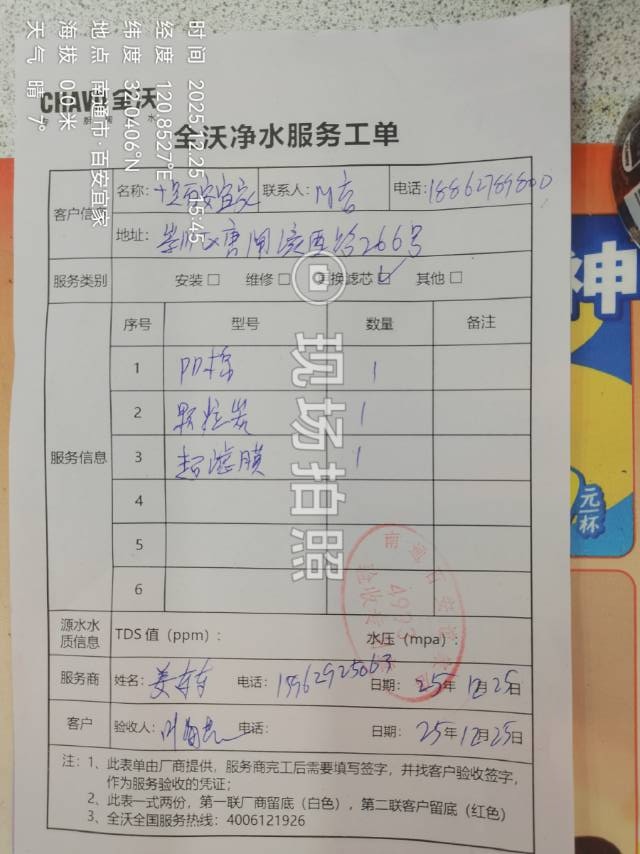 时间 2025.12.25 15:45
经度 120.8527°E
纬度 32.0406°N
地点 南通市·百安宜家
海拔 0.0米
天气 晴 7°
CHAWO 全沃
全沃净水服务工单
客户信息
名称：十足百安宜家 联系人：M店 电话：18862789800
地址： 唐闸 路266号
服务类别 安装□ 维修□ 更换滤芯☑ 其他□
服务信息
序号 型号 数量 备注
1 PP棉 1
2 颗粒炭 1
3 超滤膜 1
4
5
6
现场拍照
源水水质信息 TDS 值（ppm）： 水压（mpa）：
服务商 姓名：姜 电话： 日期：25年12月25日
客户 验收人：叶 电话： 日期：25年12月25日
注：1、此表单由厂商提供，服务商完工后需要填写签字，并找客户验收签字，
作为服务验收的凭证；
2、此表一式两份，第一联厂商留底（白色），第二联客户留底（红色）
3、全沃全国服务热线：4006121926
神
元/杯